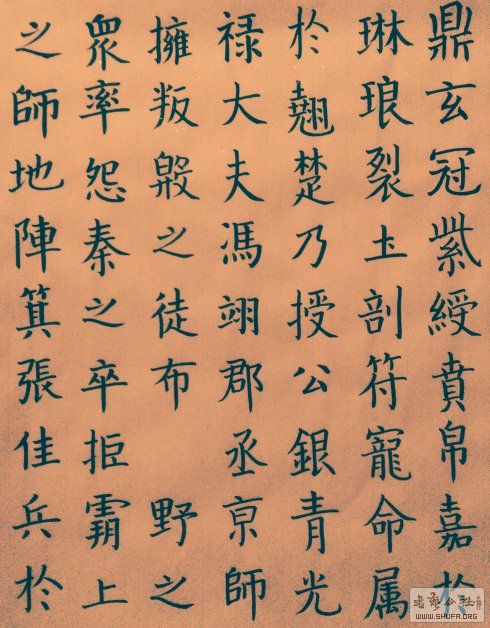 鼎玄冠紫綬賁帛嘉於
琳琅裂土剖符寵命属
於翹楚乃授公銀青光
禄大夫馮翊郡丞亰師
擁叛之徒布野之
衆率怨秦之卒拒霸上
之師地陣箕張佳兵於
WWW.SHUFA.ORG